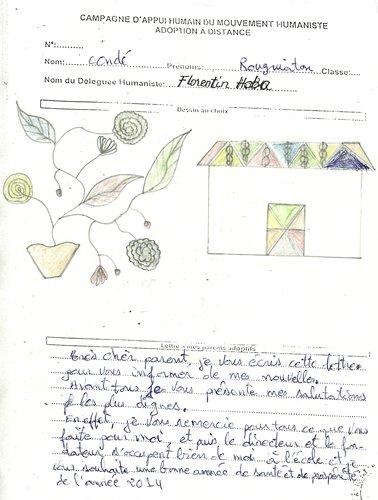 CAMPAGNE D'APPUI HUMAIN DU MOUVEMENT HUMANISTE
ADOPTION À DISTANCE
N°:..........
Nom: condé Prénoms: Rouguiatou Classe:......
Nom du Déléguee Humaniste: Florentin Haba
Dessin au choix
Lettre à mes parents adoptifs
Très cher parent, je vous écris cette lettre
pour vous informer de mes nouvelles.
Avant tous je vous présente mes salutations
les plus dignes.
En effet, je vous remercie pour tous ce que vous
faite pour moi, et puis le directeur et le fon-
dateur s'occupent bien de moi à l'école et je
vous souhaite une bonne année de santé et de prospérité
de l'année 2014